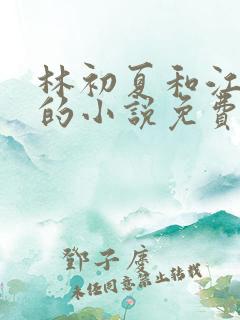 林初夏和江
的小說免費
鄧子虔
未任同意禁止转载